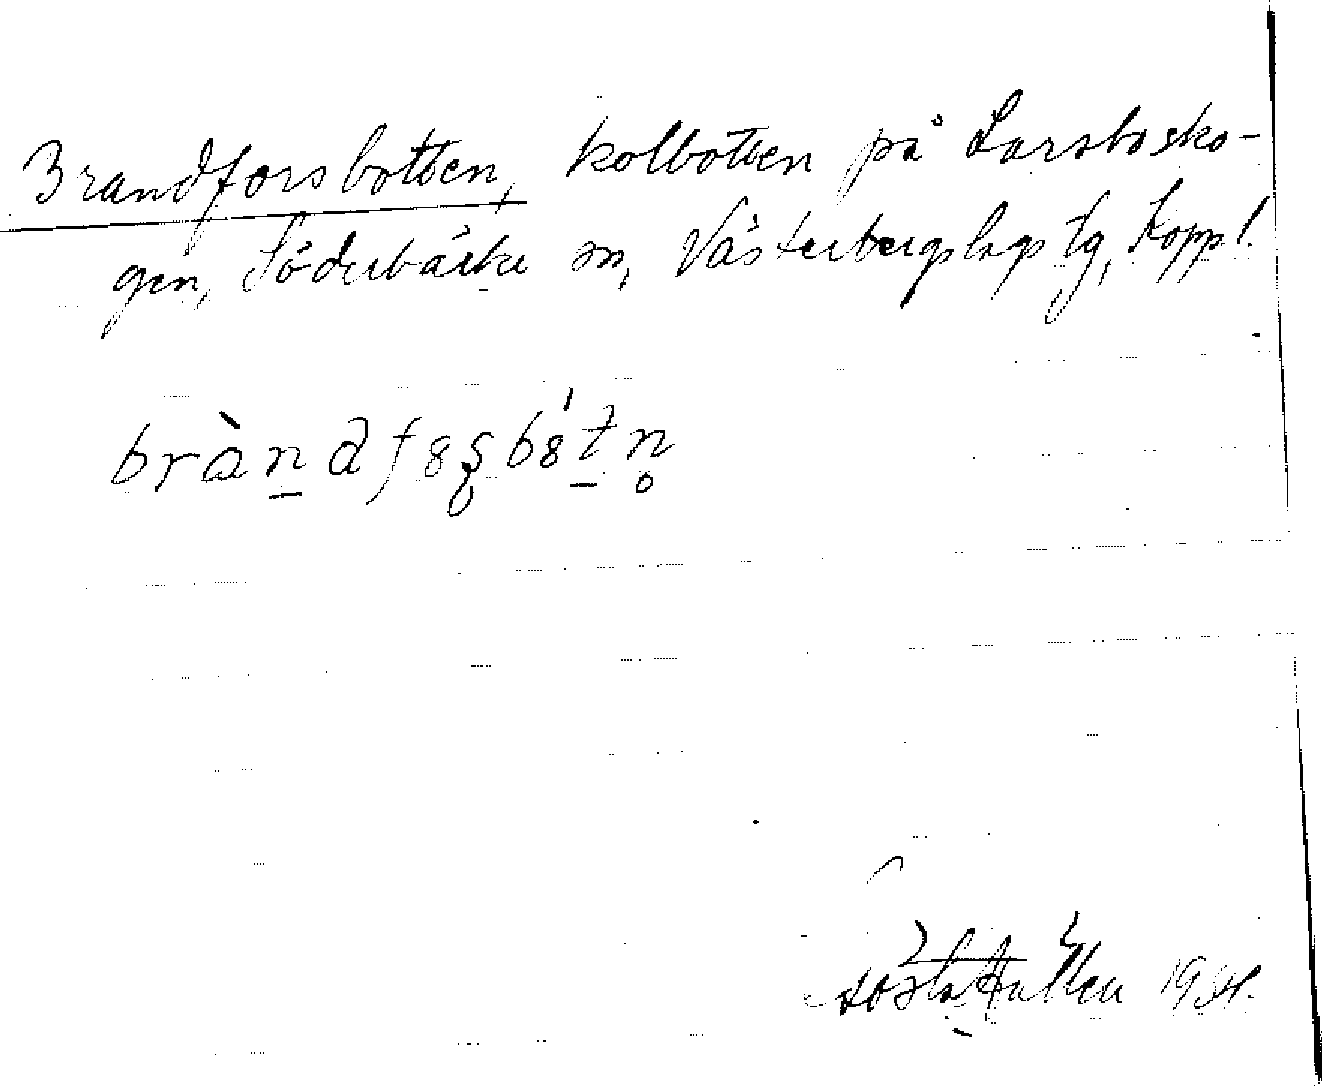 Brandforsbotten, kolbotten på Larsbosko-
gen, Söderbärke sn, Västerbergslags tg, Kopp l.
bràndfo̤ʂbót̠n̥
Gösta